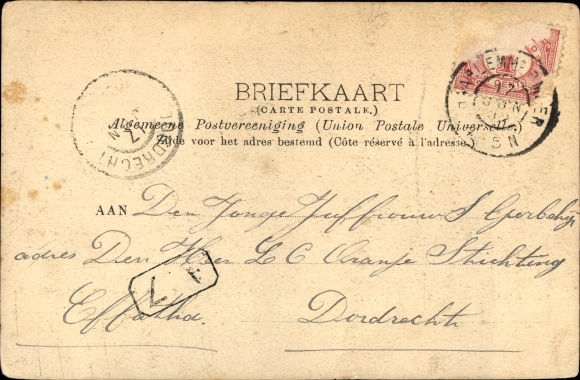 BRIEFKAART
(CARTE POSTALE.)
Algemeene Postvereeniging (Union Postale Universelle.)
Zijde voor het adres bestemd (Côte réservé à l'adresse.)
DORDRECHT
HAARLEMMERMEER
CENT
AAN Den Jonge Juffrouw S
adres Den Heer L C Oranje Stichting
Effatha. Dordrecht